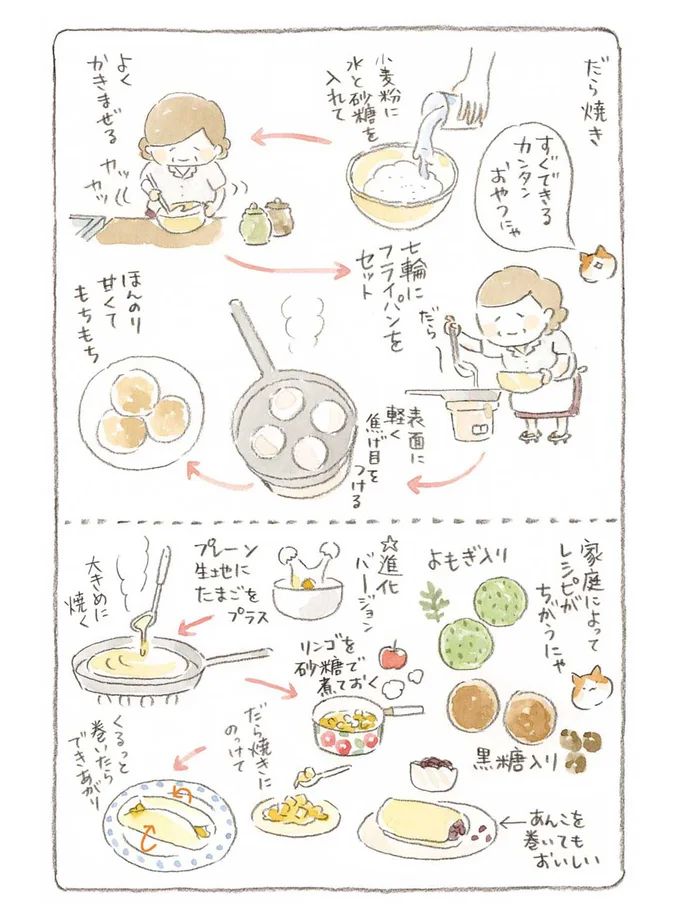 だら焼き
すぐできる
カンタン
おやつにゃ
小麦粉に
水と砂糖を
入れて
よく
かきまぜる
カッ
カッ
七輪に
フライパンを
セット
だら〜
表面に
軽く
焦げ目を
つける
ほんのり
甘くて
もちもち
家庭によって
レシピが
ちがうにゃ
よもぎ入り
黒糖入り
☆進化
バージョン
プレーン
生地に
たまごを
プラス
大きめに
焼く
リンゴを
砂糖で
煮ておく
だら焼きに
のっけて
くるっと
巻いたら
できあがり
←あんこを
巻いても
おいしい